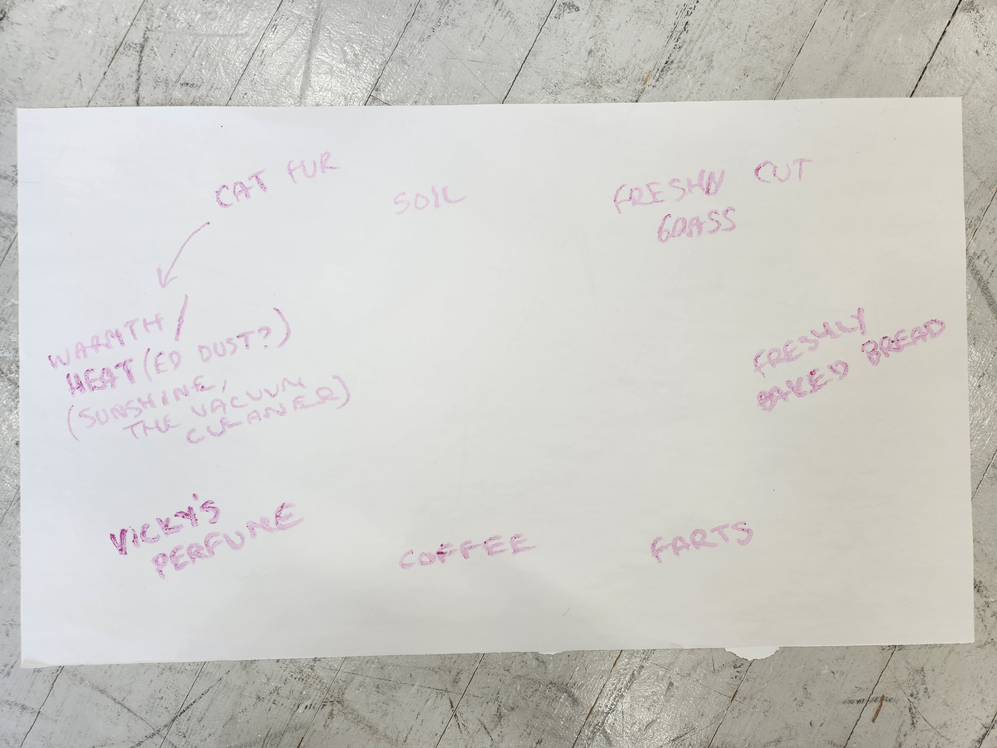 CAT FUR
SOIL
FRESHLY CUT
GRASS
WARMTH /
HEAT (ED DUST?)
(SUNSHINE,
THE VACUUM
CLEANER)
FRESHLY
BAKED BREAD
VICKY'S
PERFUME
COFFEE
FARTS